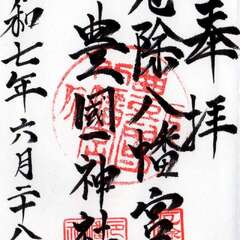 奉拝
厄除八幡宮
豊國神社
令和七年六月二十八